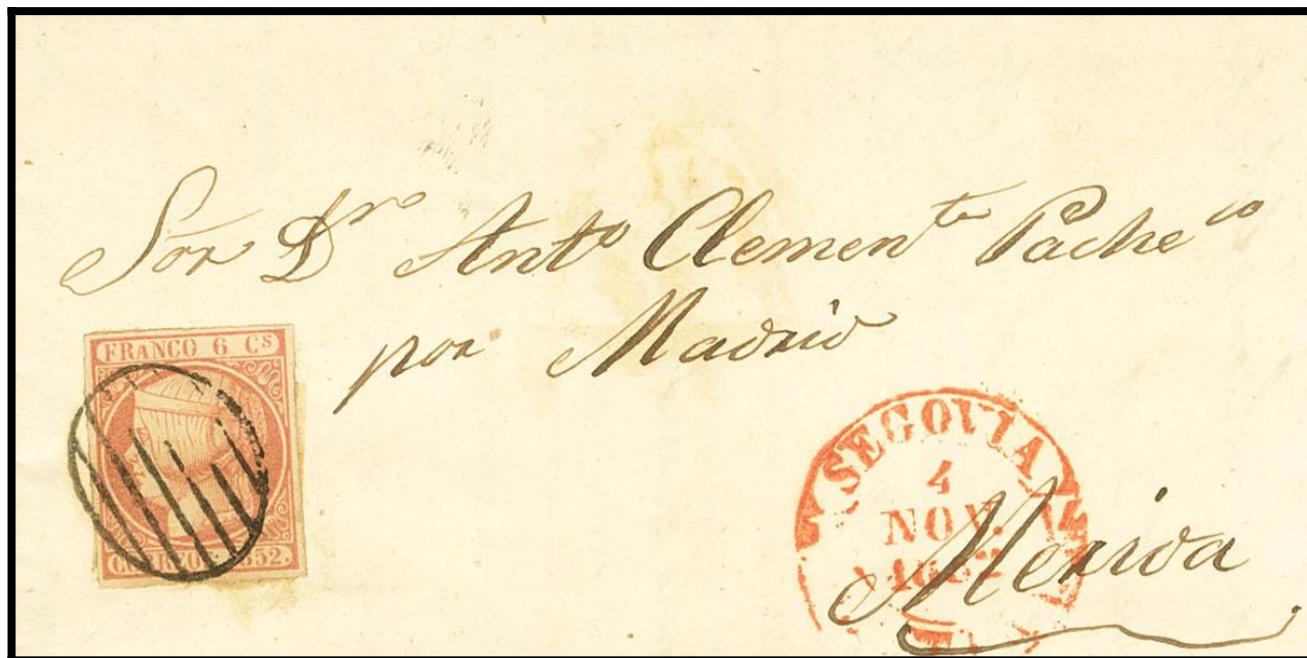 Sor Dn Anto Clemente Pacheco
por Madrid
FRANCO 6 Cs
CORREOS 1852.
SEGOVIA
4
NOV.
1852
Merida